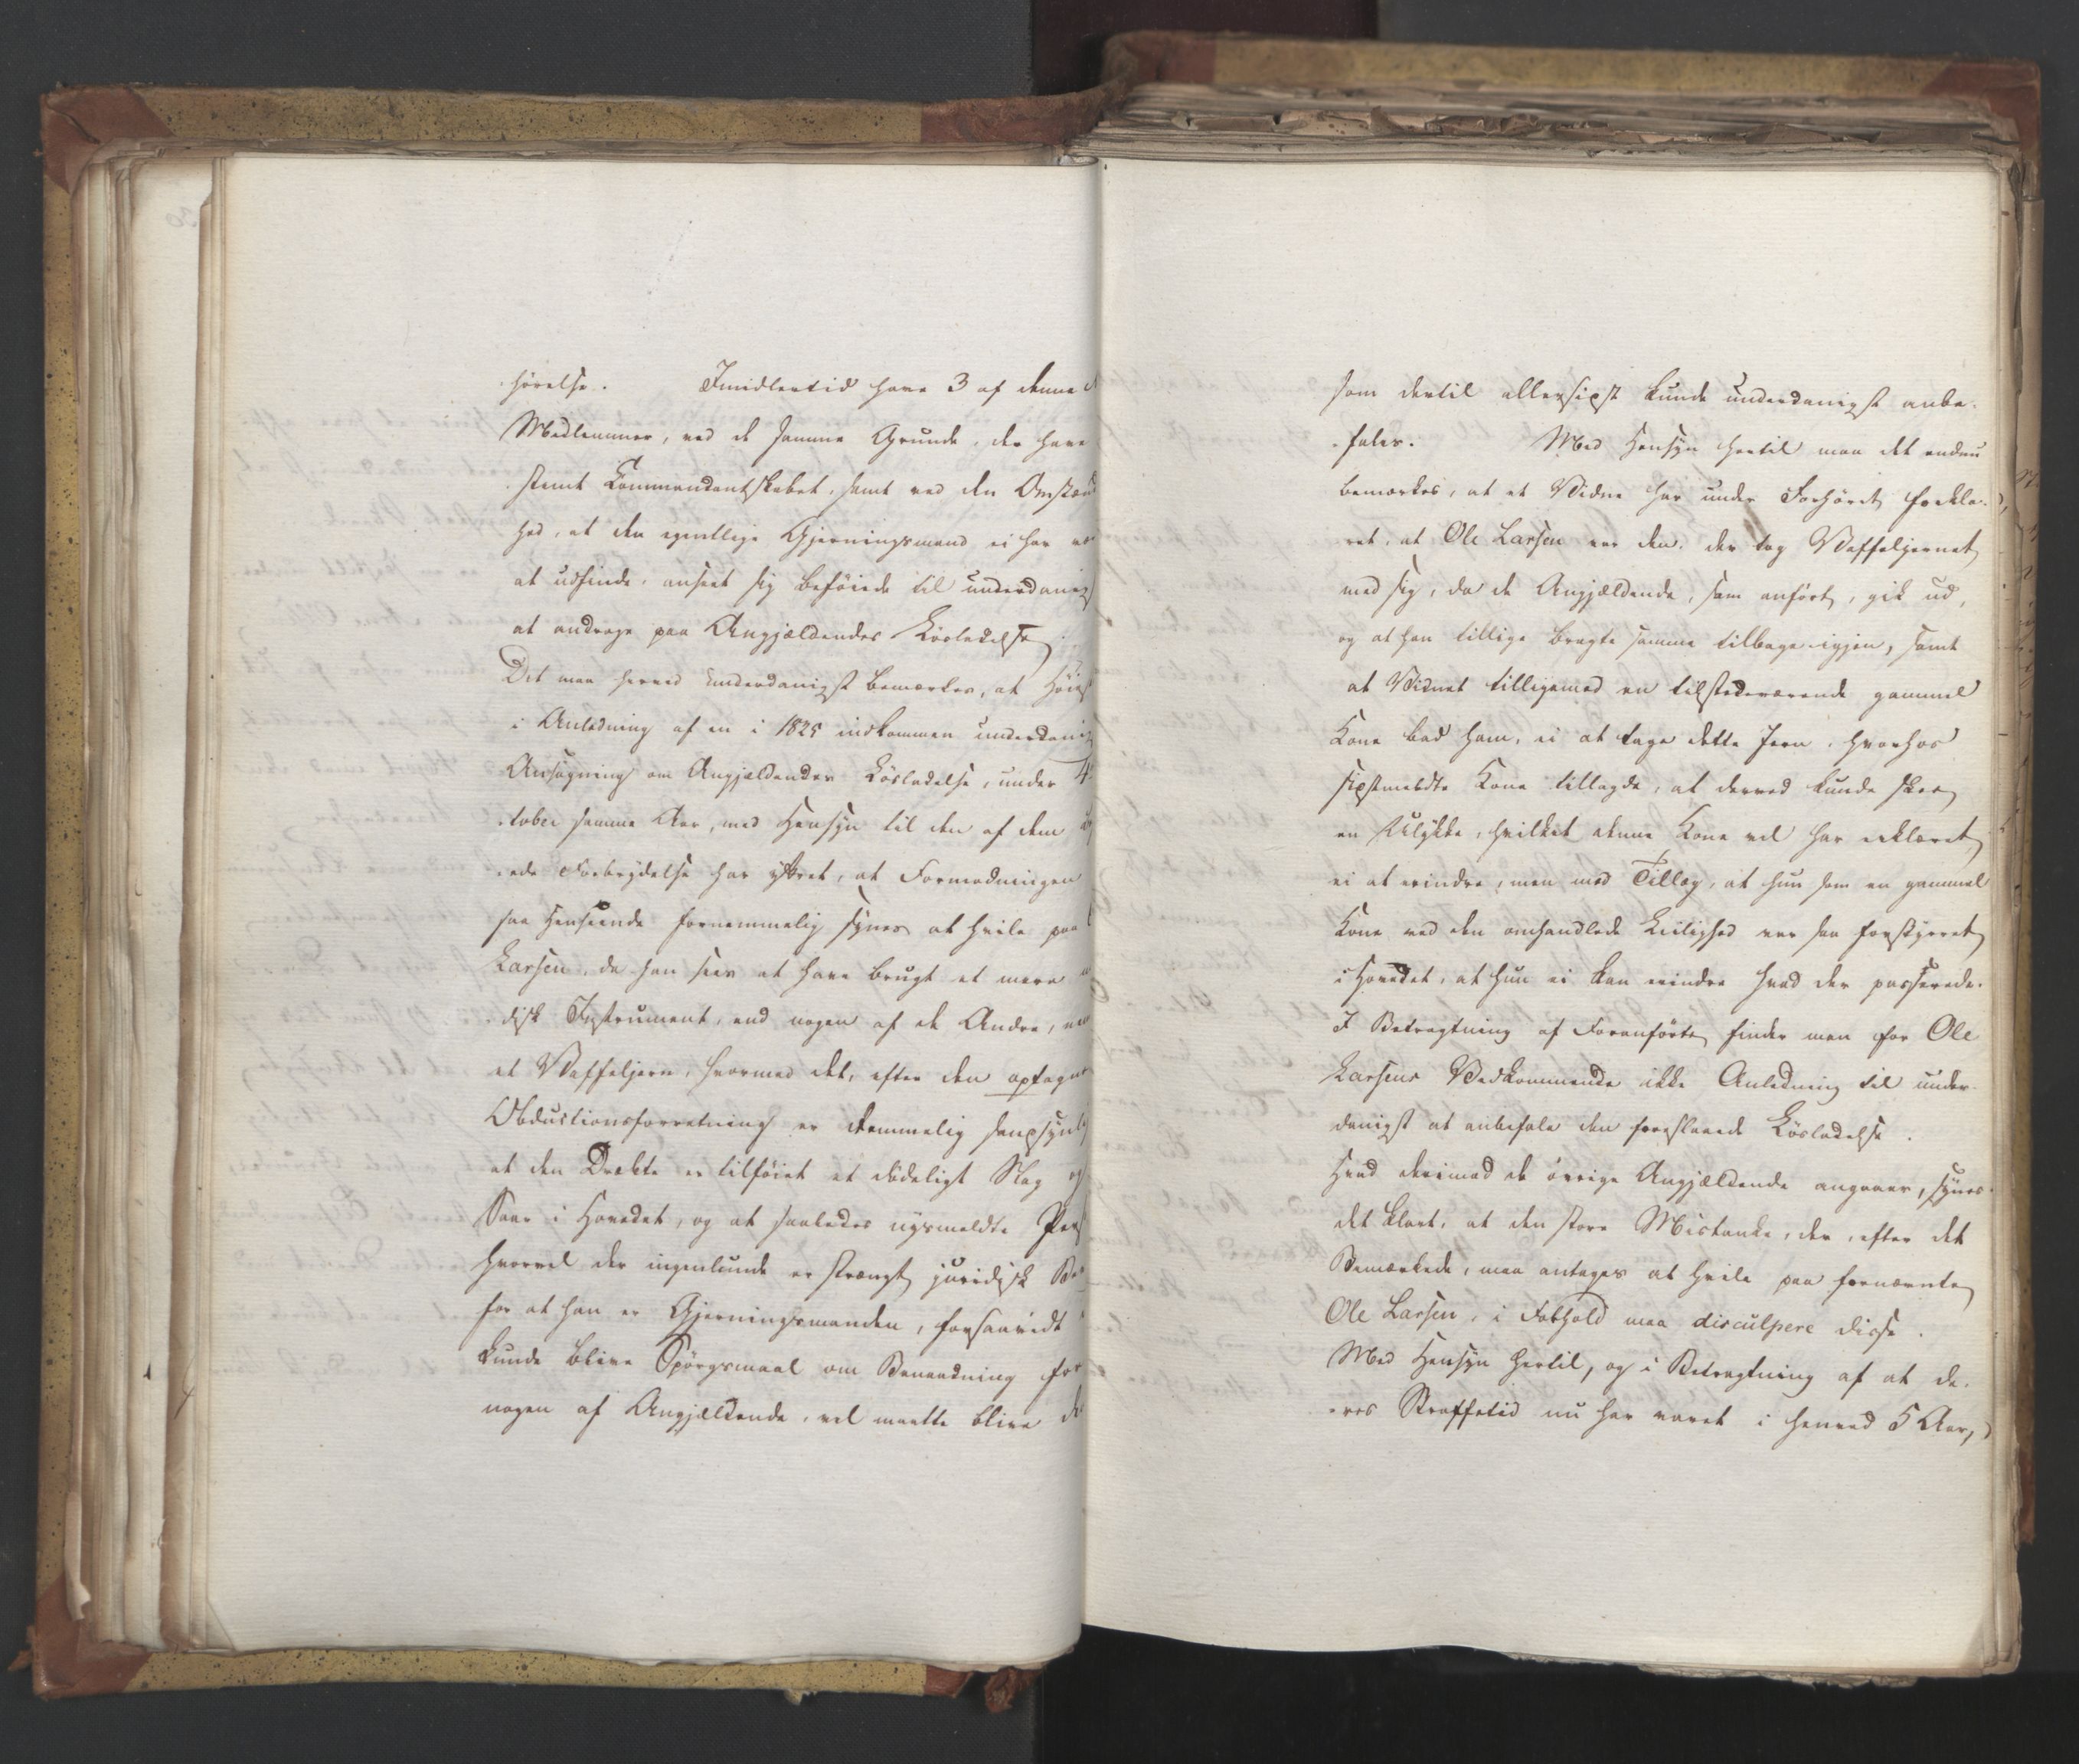 hörelse. Imidlertid have 3 af denne
Medlemmer, ved de samme Grunde, der have
stemt Commendantskabet, samt ved den Omstænd
hed, at den egentlige Gjerningsmand ei har
at udfinde, anseet sig beföiede til underdanigst
at andrage paa Angjældendes Lösladelse
Det maa herved underdanigst bemærkes, at Höiest
i Anledning af en i 1825 indkommen underdanig
Ansögning om Angjældendes Lösladelse, under 4
tober samme Aar, med Hensyn til den af dem
ede Forbrydelse har yttret, at Formodningen
saa Henseende fornemmelig synes at hvile paa
Larsen, da han sees at have brugt et mere
disk Instrument, end nogen af de Andre,
et Vaffeljern, hvormed det, efter den optagne
Obductionsforretning er temmelig sandsynlig
at den Dræbte er tilföiet et dödeligt Slag og
Saar i Hovedet, og at saaledes nysmeldte Pers
hvorvel der ingenlunde er strængt juridisk Be
for at han er Gjerningsmanden, forsaavidt
kunde blive Spörgsmaal om Benaadning for
nogen af Angjældende, vel maatte blive de
som dertil allersidst kunde underdanigst anbe-
fales. Med Hensyn hertil maa det endnu
bemærkes, at et Vidne har under Forhöret forkla-
ret, at Ole Larsen var den, der tog Vaffeljernet
med sig, da de Angjældende, som anfört, gik ud,
og at han tillige bragte samme tilbage igjen, samt
at Vidnet tilligemed en tilstedeværende gammel
Kone bad ham, ei at tage dette Jern, hvorhos
sidstmeldte Kone tillagde, at derved kunde skee
en Ulykke, hvilket denne Kone vel har erklæret
ei at erindre, men med Tillæg, at hun som en gammel
Kone ved den omhandlede Leilighed var saa forstyrret
i Hovedet, at hun ei kan erindre hvad der passerede.
I Betragtning af Foranförte finder man for Ole
Larsens Vedkommende ikke Anledning til under-
danigst at anbefale den foreslaaede Löslade​lse.
Hvad derimod de övrige Angjældende angaaer, synes
det klart, at den store Mistanke, der, efter det
Bemærkede, maa antages at hvile paa fornævnte
Ole Larsen, i Forhold maa disculpere disse.
Med Hensyn hertil, og i Betragtning af at de-
res Straffetid nu har varet i henved 5 Aar,